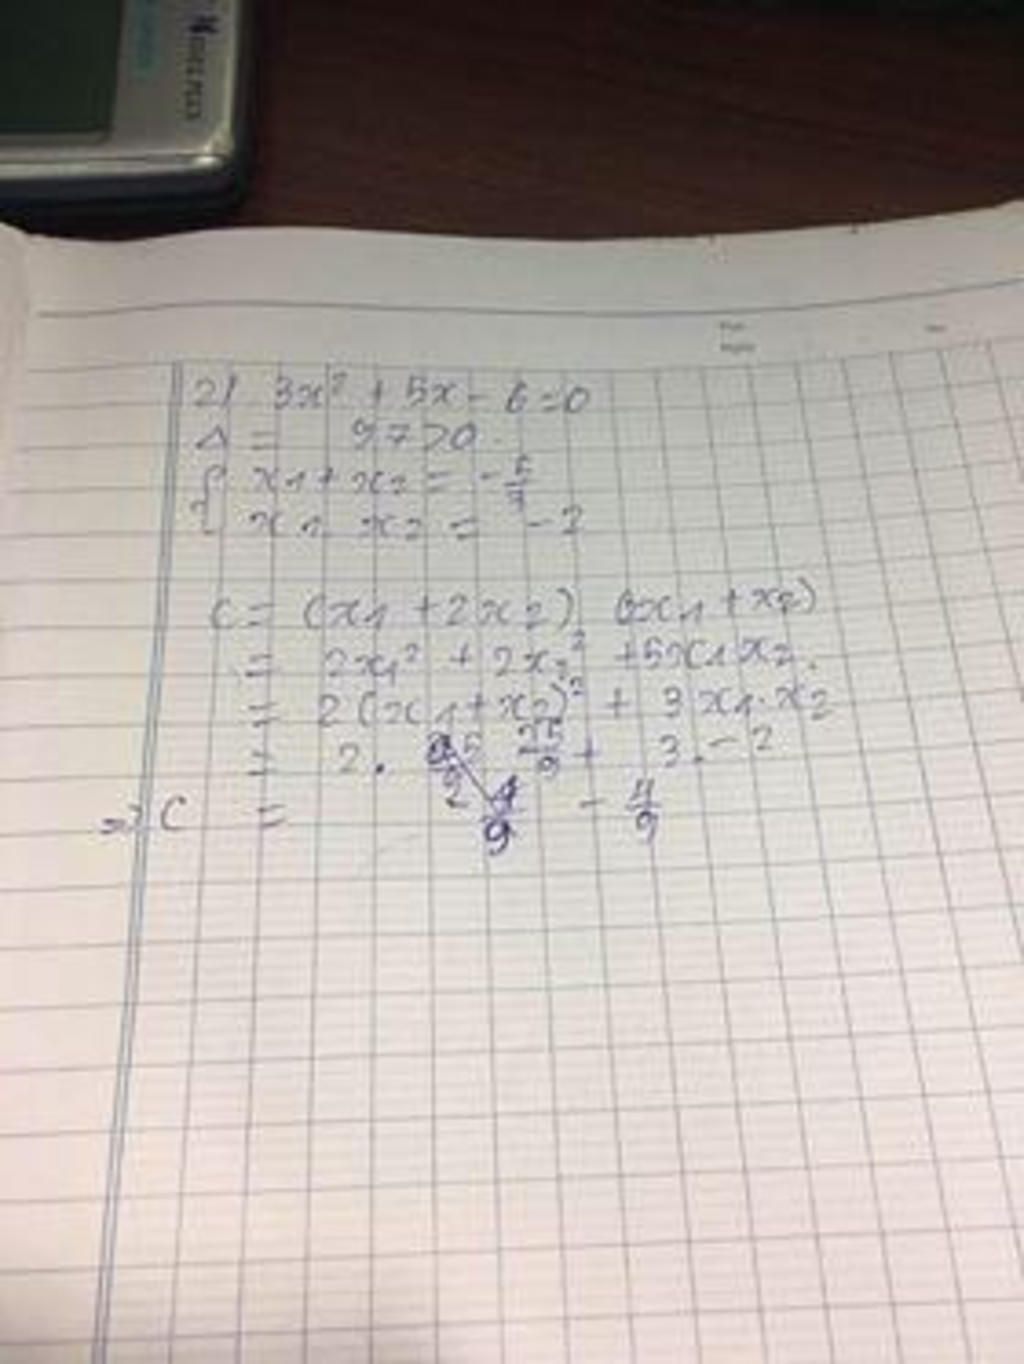 2) 3x² + 5x - 6 = 0
Δ = 97 > 0
{ x1 + x2 = - 5/3
x1 . x2 = - 2
C = (x1 + 2x2) (2x1 + x2)
= 2x1² + 2x2² + 5x1x2.
= 2(x1 + x2)² + 3x1.x2
= 2 . 25/9 + 3. - 2
=> C = - 4/9